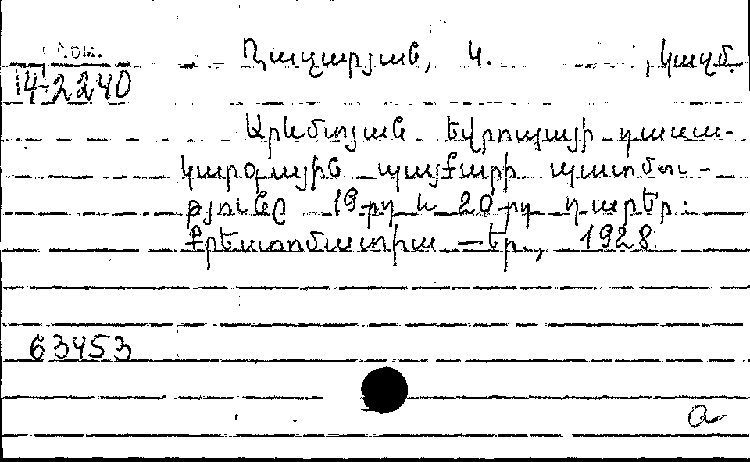 Ղազարյան, Կ. , կազմ.
14-2240
Արևմտյան Եվրոպայի դասա-
կարգային պայքարի պատմու-
թյունը 19-րդ և 20-րդ դարեր:
Քրեստոմատիա —Եր., 1928
63453
a